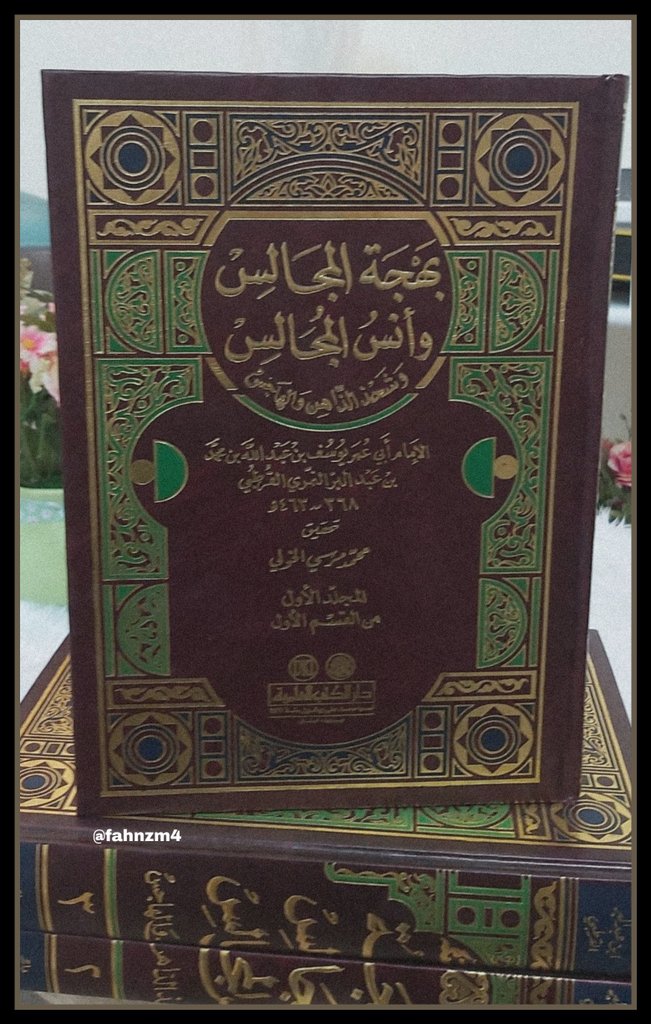 بَهْجَة المَجَالِسْ
وأنسُ المُجَالِسْ
وَشَحْذ الذَّاهِن وَالهَاجِسْ
الإمَام أبي عُمَر يُوسُف بن عَبْد اللَّه بن محمَّد
بن عَبْد البَر النمري القُرطُبي
٣٦٨ - ٤٦٣هـ
تحقيق
محمّد مرسي الخولي
المجلّد الأول
من القسم الأول
دار الكتب العلمية
@fahnzm4
٣
٢